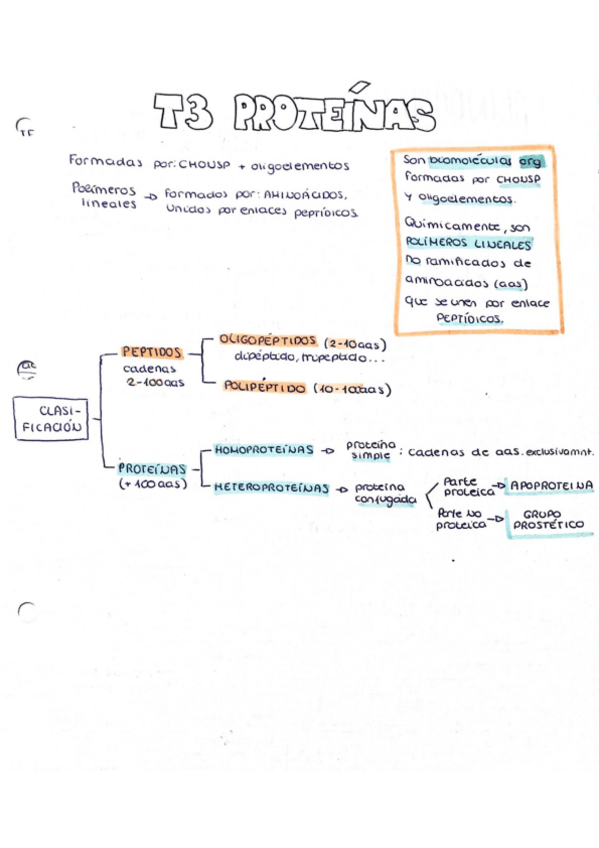 T3 PROTEÍNAS
Formadas por: CHONSP + oligoelementos
Polímeros lineales → Formados por: AMINOÁCIDOS,
Unidos por enlaces peptídicos.
Son biomoléculas org
formadas por CHONSP
y oligoelementos.
Químicamente, son
POLÍMEROS LINEALES
no ramificados de
aminoacidos (aas)
que se unen por enlace
PEPTÍDICOS.
CLASI-
FICACIÓN
PEPTIDOS
cadenas
2-100aas
OLIGOPÉPTIDOS (2-10aas)
dipéptido, tripeptido...
POLIPÉPTIDO (10-100aas)
PROTEÍNAS
(+100aas)
HOMOPROTEÍNAS → proteína simple : cadenas de aas. exclusivamnt.
HETEROPROTEÍNAS → proteina conjugada
Parte proteica → APOPROTEINA
Parte NO proteica → GRUPO PROSTÉTICO